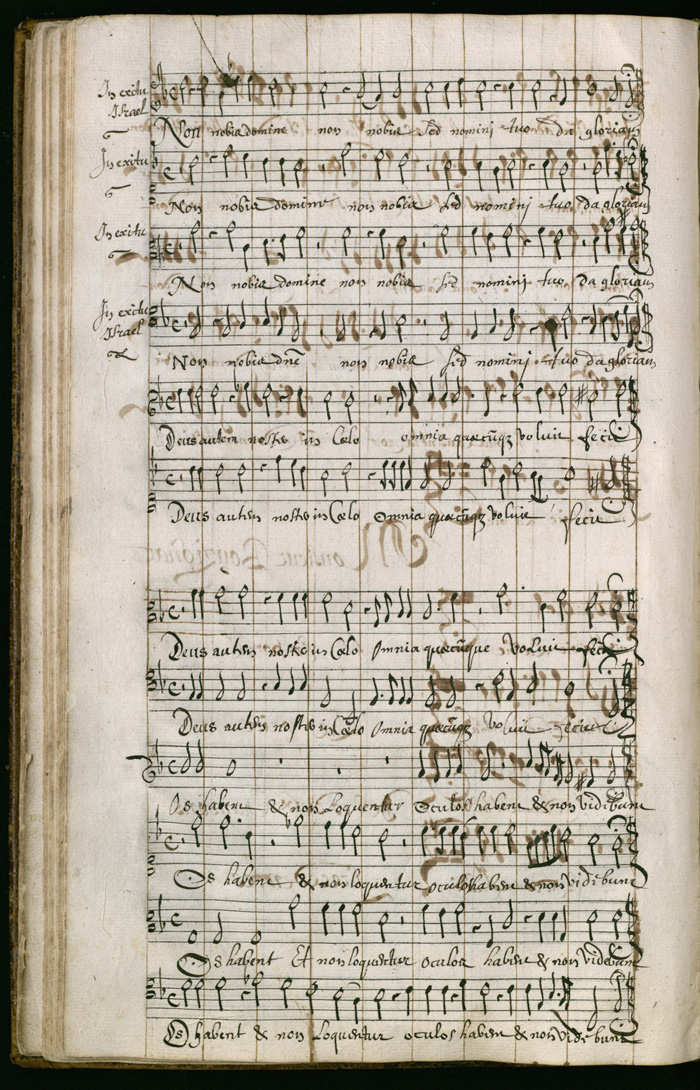 In exitu
Israel
Non nobis domine non nobis sed nomini tuo da gloriam
In exitu
Non nobis domine non nobis sed nomini tuo da gloriam
In exitu
Non nobis domine non nobis sed nomini tuo da gloriam
In exitu
Israel
Non nobis dnē non nobis sed nomini tuo da gloriam
Deus autem noster in Cœlo omnia quæcūqz voluit fecit
Deus autem noster in Cœlo Omnia quæcūqz voluit fecit
Deus autem noster in Cœlo Omnia quæcūque Voluit fecit
Deus autem noster in Cœlo Omnia quæcūqz voluit fecit
Os habent & non Loquentur Oculos habent & non vidibunt
Os habent & non loquentur oculos habent & non vidibunt
Os habent Et non loquentur oculos habent & non videbunt
Os habent & non Loquentur oculos habent & non videbunt